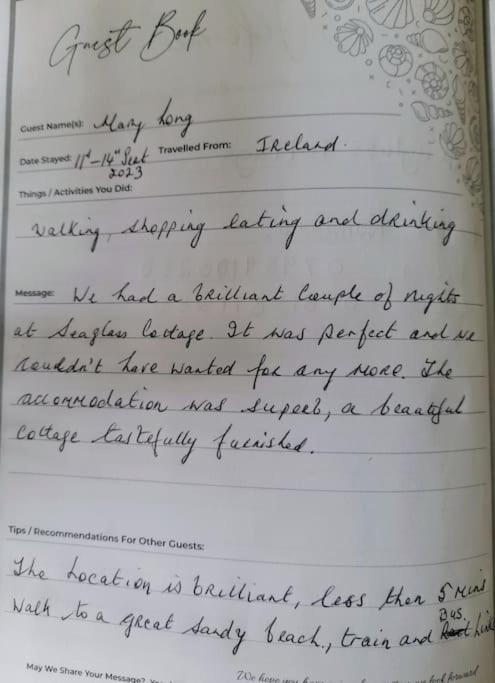 Guest Book
Guest Name(s): Mary Long
Date Stayed: 11th-14th Sept Travelled From: IReland.
2023
Things / Activities You Did:
Walking, shopping eating and drinking
Message: We had a brilliant couple of nights
at Seaglass Cottage. It was perfect and we
couldn't have wanted for any more. The
accommodation was superb, a beautiful
cottage tastefully furnished.
Tips / Recommendations For Other Guests:
The Location is brilliant, less then 5 mins
Walk to a great sandy beach., train and Bus.
May We Share Your Message?
We hope you look forward